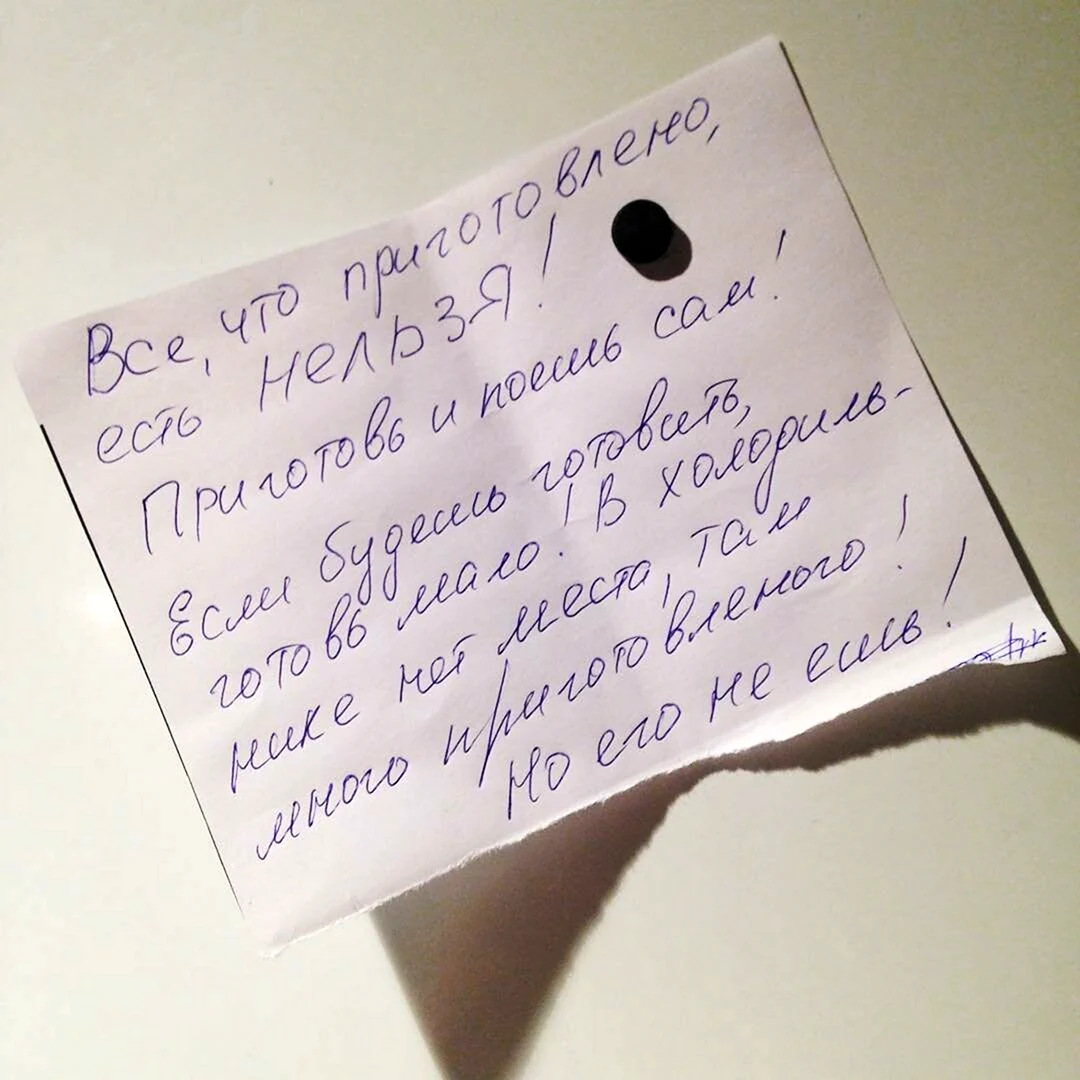 Все, что приготовлено,
есть НЕЛЬЗЯ!
Приготовь и поешь сам!
Если будешь готовить,
готовь мало! В холодиль-
нике нет места, там
много приготовленого!
Но его не ешь!